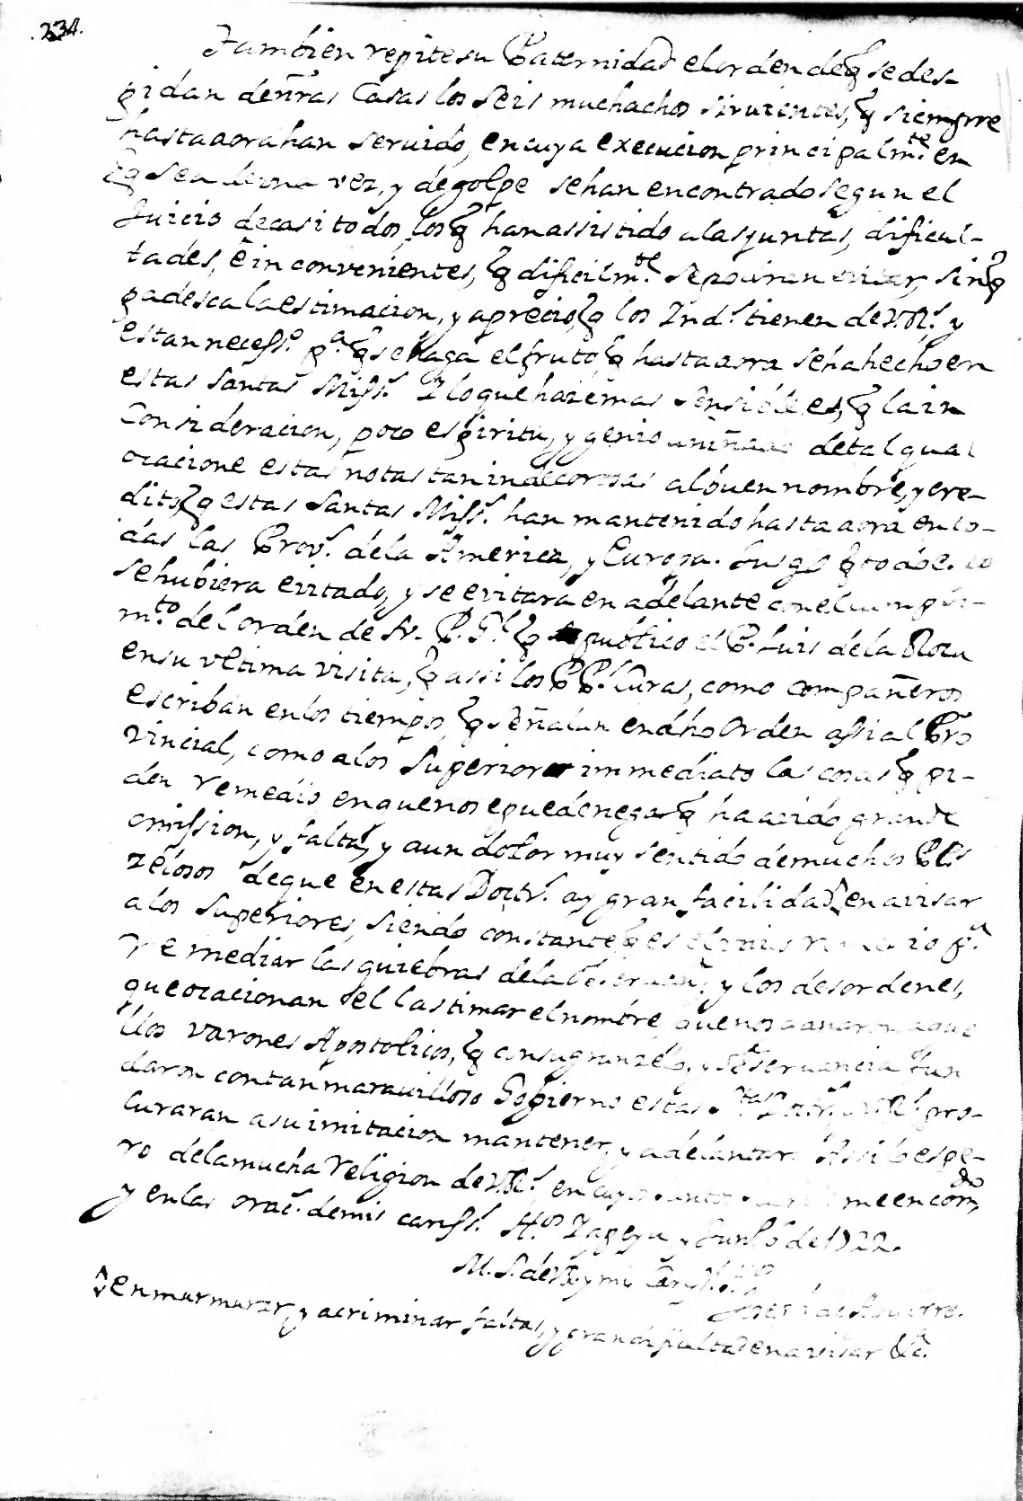 .234.
Tambien repite su Paternidad el orden de q̃ se des-
pidan de nr̃as Casas los seis muchachos sirvientes, q̃ siempre
hasta aora han servido, en cuya execucion principalm.te en
q̃ sea de una vez, y de golpe se han encontrado segun el
Juicio de casi todos los q̃ han assistido a las juntas, dificul-
tades, ẽ inconvenientes, q̃ dificilm.te se podran evitar, sin q̃
padesca la estimacion, y aprecio, q̃ los Ind.s tienen de V.R.s y
es tan necess.o p.a q̃ se haga el fruto, q̃ hasta aora se ha hecho en
estas Santas Miss.s Y lo que haze mas sensible es, q̃ la in
Consideracion, poco espiritu, y genio aniñado de tal qual
ocacione estas notas tan indecorosas al buen nombre, y cre-
dito, q̃ estas Santas Miss.s han mantenido hasta aora en to-
das las Prov.s de la America, y Europa. q̃ todo
se hubiera evitado, y se evitara en adelante con el cumpli-
m.to del orden de N. P. G.l q̃ publico el P. Luis de la Roca
en su ultima visita, q̃ assi los PP. Curas, como compañeros
escriban en los tiempos, q̃ señalan en dho Orden assi al Pro
vincial, como a los Superiores immediatos las cosas q̃ pi-
den remedio en que no se puede negar q̃ ha avido grande
omission, y falta, y aun dolor muy sentido de muchos PP.s
zelosos de que en estas Doctr.s ay gran facilidad en avisar
a los Superiores, siendo constante q̃ es el p.a
remediar las quiebras de la y los desordenes,
que ocacionan el lastimar el nombre que nos ganaron aque
llos varones Apostolicos, q̃ con su gran zelo, y observancia fun
daron con tan maravilloso Gobierno estas S.tas Doctr.s V.R.s pro-
curaran a su imitacion mantener, y adelantar. Assi lo espe-
ro de la mucha religion de V.R.s en cuyos santos me encom.do
y en las orac.s de mis cariss.s H.os Yapeyu y Jun.o 6 de 1722.
M. S. de V.R. y mi
Joseph de Aguirre.
en murmurar, y acriminar faltas, y gran dificultad en avisar &a.